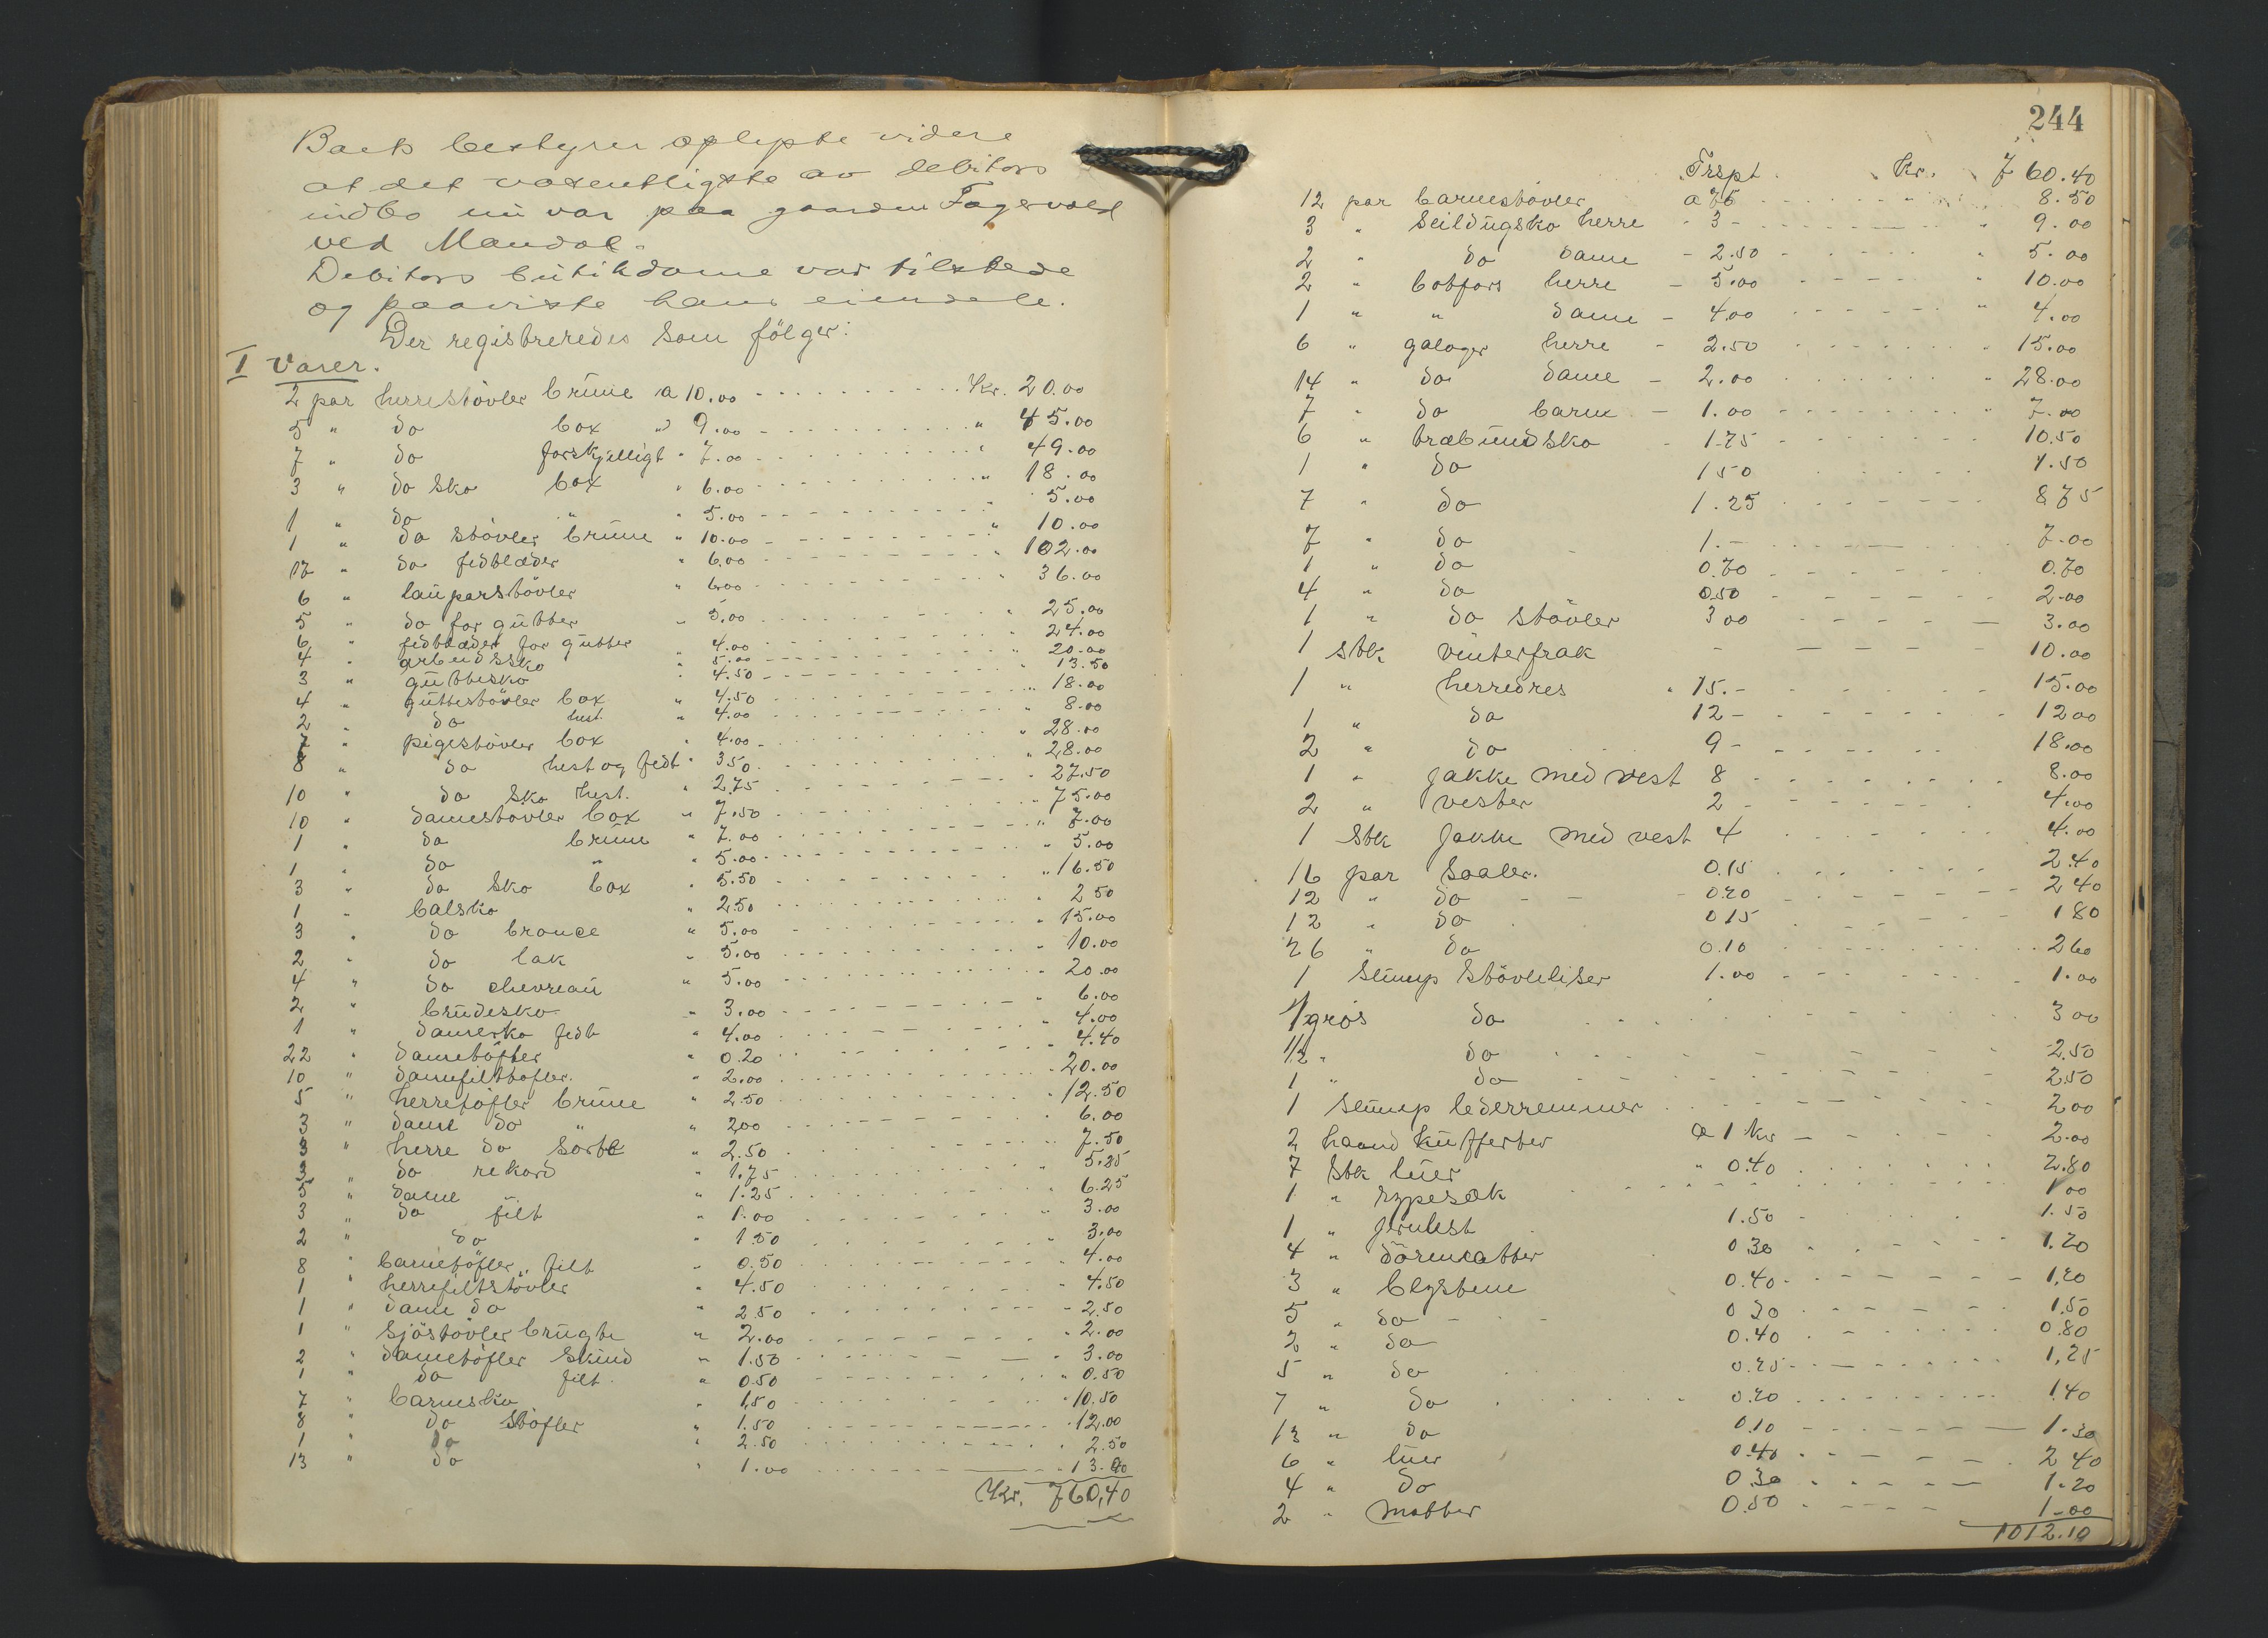 Baets bestyrer oplyste videre
at det væsentligste av debitors
indbo nu var paa gaarden Fagervold
ved Mandal.
Debitors butikdame var tilstede
og paaviste hans eiendele.
Der registreredes som følger:
I Varer.
2 par herrestövler brune a 10.00 Kr. 20.00
5 " do box " 9.00 " 45.00
7 " do forskjelligt " 7.00 " 49.00
3 " do sko box " 6.00 " 18.00
1 " do " " 5.00 " 5.00
1 " do stövler brune " 10.00 " 10.00
17 " do fedtlæder " 6.00 " 102.00
6 " lauparstövler " 6.00 36.00
5 " do for gutter " 5.00 " 25.00
6 " fedtlæder for gutter " 4.00 " 24.00
4 " arbeidssko " 5.00 " 20.00
3 " guttesko " 4.50 13.50
4 " guttestövler box " 4.50 " 18.00
2 " do hest. " 4.00 " 8.00
7 " pigestövler box " 4.00 " 28.00
8 " do hest og fedt " 3.50 " 28.00
10 " do sko hest. " 2.75 " 27.50
10 " damestövler box " 7.50 " 75.00
1 " do brune " 7.00 " 7.00
1 " do " " 5.00 " 5.00
3 " do sko box " 5.50 " 16.50
1 " balsko " 2.50 " 2.50
3 " do bronce " 5.00 " 15.00
2 " do lak " 5.00 " 10.00
4 " do chevreau " 5.00 " 20.00
2 " brudesko " 3.00 " 6.00
1 " damesko fedt " 4.00 " 4.00
22 " dametöfler " 0.20 " 4.40
10 " damefilttöfler. " 2.00 " 20.00
5 " herretöfler brune " 2.50 " 12.50
3 " dame do " " 2.00 " 6.00
3 " herre do sorte " 2.50 " 7.50
3 " do rekord " 1.75 " 5.25
5 " dame " 1.25 " 6.25
3 " do filt " 1.00 " 3.00
2 " do " 1.50 " 3.00
8 " barnetöfler filt " 0.50 " 4.00
1 " herrefiltstövler " 4.50 " 4.50
1 " dame do " 2.50 2.50
1 " Sjöstövler brugte " 2.00 " 2.00
2 " dametöfler skind " 1.50 " 3.00
1 " do filt " 0.50 " 0.50
7 " barnesko " 1.50 " 10.50
8 " do stöfler " 1.50 " 12.00
1 " do " 2.50 " 2.50
13 " do " 1.00 " 13.00
Kr. 760,40
244
Trspt. Kr. 760.40
12 par barnestövler a 75 " 8.50
3 " Seildugsko herre - 3 - " 9.00
2 " do dame - 2.50 " 5.00
2 " botfors herre - 5.00 " 10.00
1 " " dame - 4.00 " 4.00
6 " galoger herre - 2.50 " 15.00
14 " do dame - 2.00 " 28.00
7 " do barne - 1.00 " 7.00
6 " træbundsko - 1.75 10.50
1 " do 1 50 1.50
7 " do 1.25 8 75
7 " do 1.- 7.00
1 " do 0.70 0.70
4 " do 0.50 2.00
1 " do stövler 3 00 3.00
1 stk vinterfrak 10.00
1 " herredres " 15.- 15.00
1 " do 12 - 12 00
2 " do 9 - 18.00
1 " Jakke med vest 8 8.00
2 " vester 2 4.00
1 stk Jakke med vest 4 4.00
16 par saaler. 0.15 2.40
12 " do 0.20 2 40
12 " do 0 15 1 80
26 " do 0.10 2 60
1 slump stövleliser 1.00 1.00
1 gros do 3 00
1/2 " do 2.50
1 " do 2.50
1 slump læderremmer 2 00
2 haand kufferter a 1 kr 2.00
7 stk luer " 0.40 2.80
1 " rypesæk 1 00
1 " 1.50 1.50
4 " dörmatter 0 30 1.20
3 " Blystene 0.40 1,20
5 " do 0 30 1.50
2 " do 0.40 0.80
5 " do 0.25 1,25
7 " do 0.20 1.40
13 " do 0.10 1.30
6 " luer 0.40 2 40
4 " do 0.30 1.20
2 " matter 0.50 1.00
1012.10